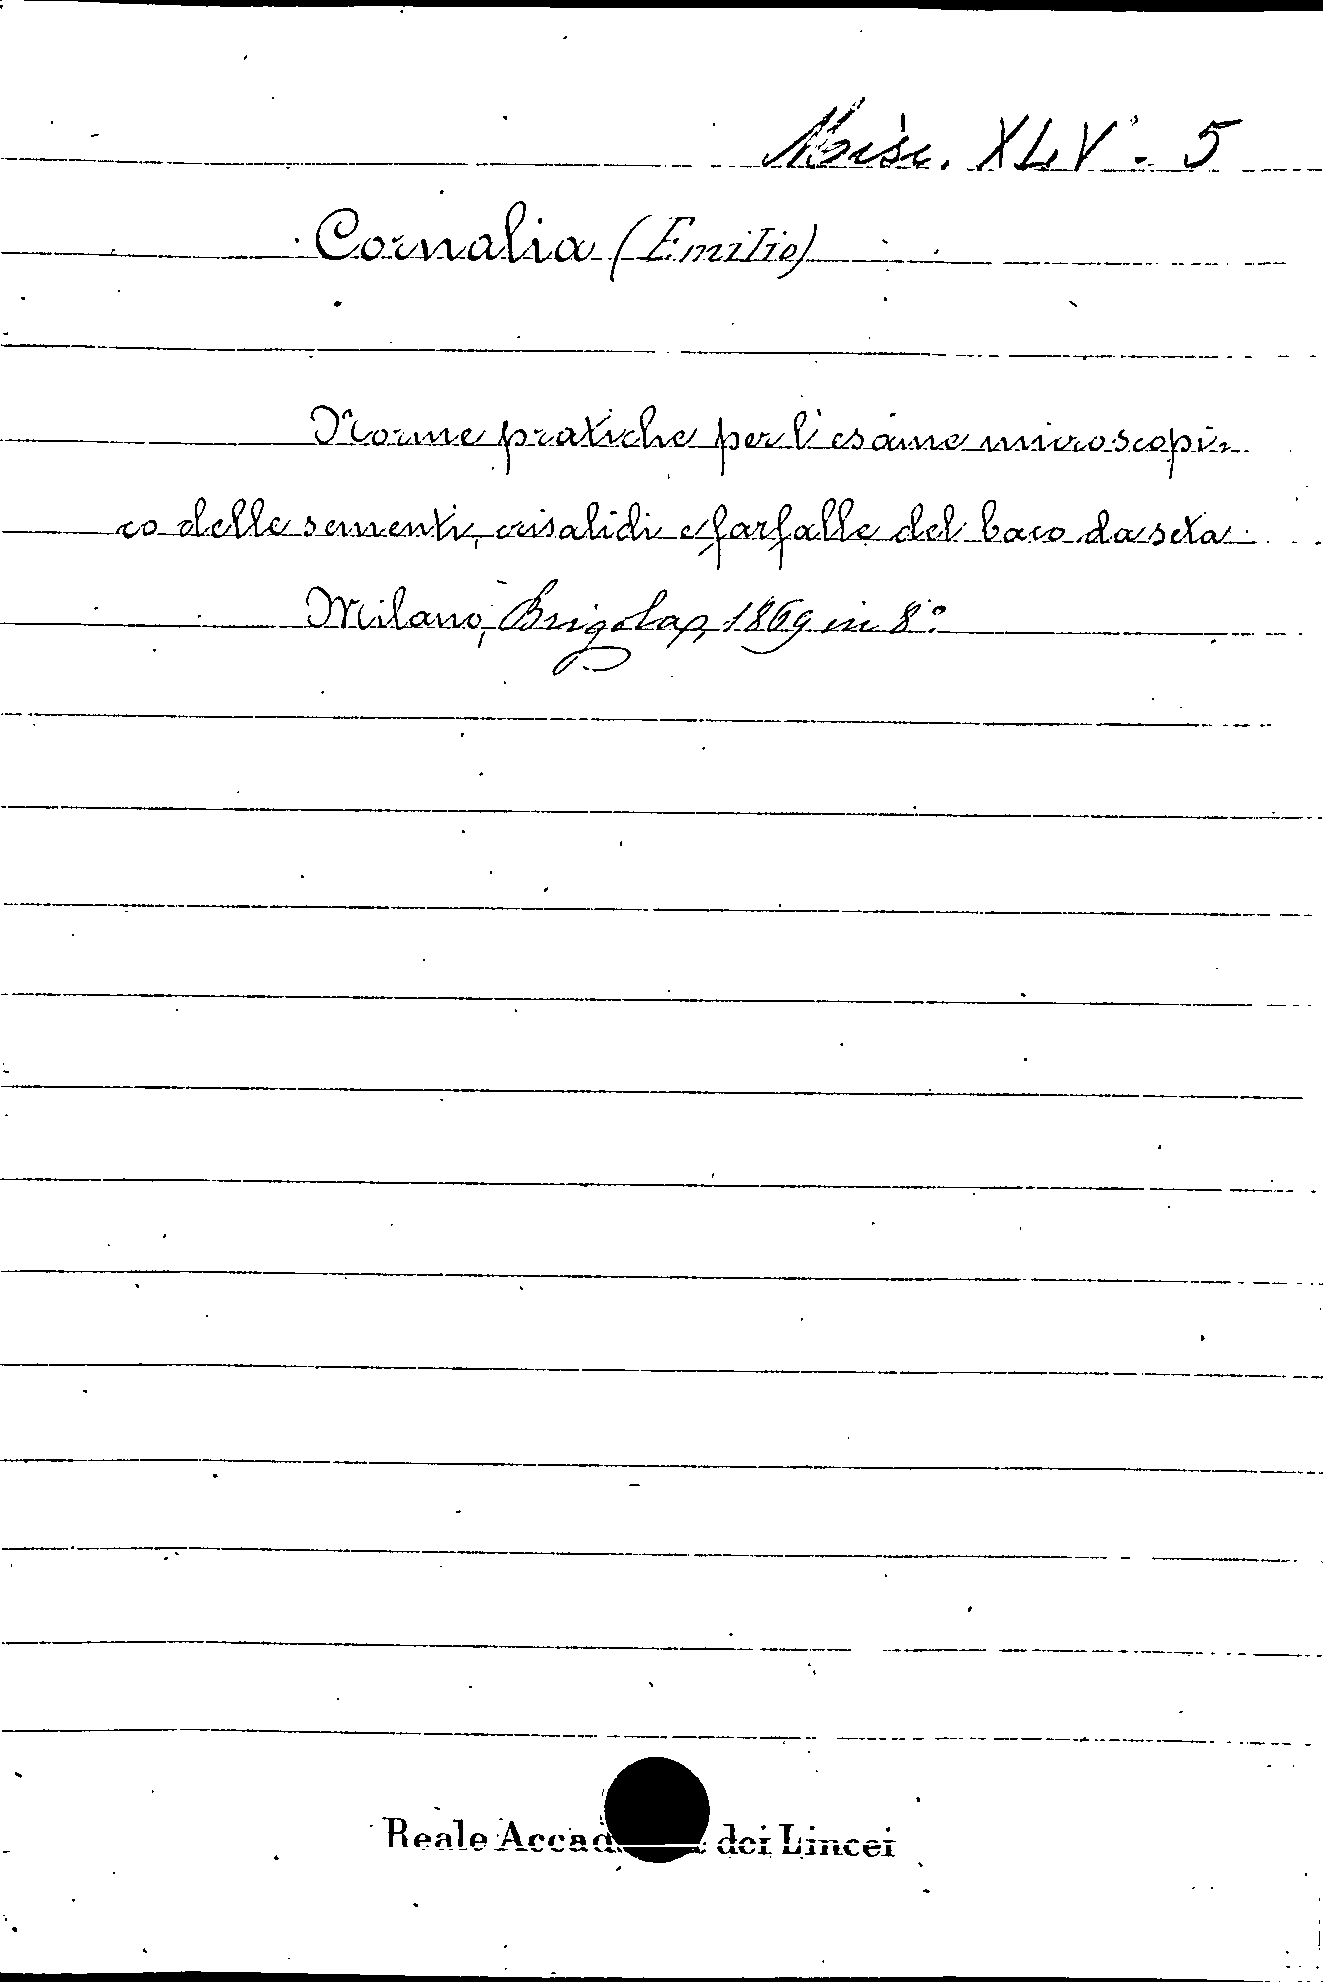 Misc. XLV. 5
Cornalia (Emilio)
Norme pratiche per l'esame microscopi-
co delle sementi, crisalidi e farfalle del baco da seta
Milano, Brigola, 1869 in 8°
Reale Accad dei Lincei